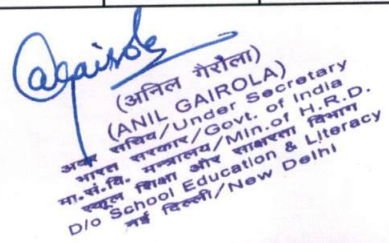 (अनिल गैरोला)
(ANIL GAIROLA)
अवर सचिव/Under Secretary
भारत सरकार/Govt. of India
मा.सं.वि. मन्त्रालय/Min.of H.R.D.
स्कूल शिक्षा और साक्षरता विभाग
D/o School Education & Literacy
नई दिल्ली/New Delhi